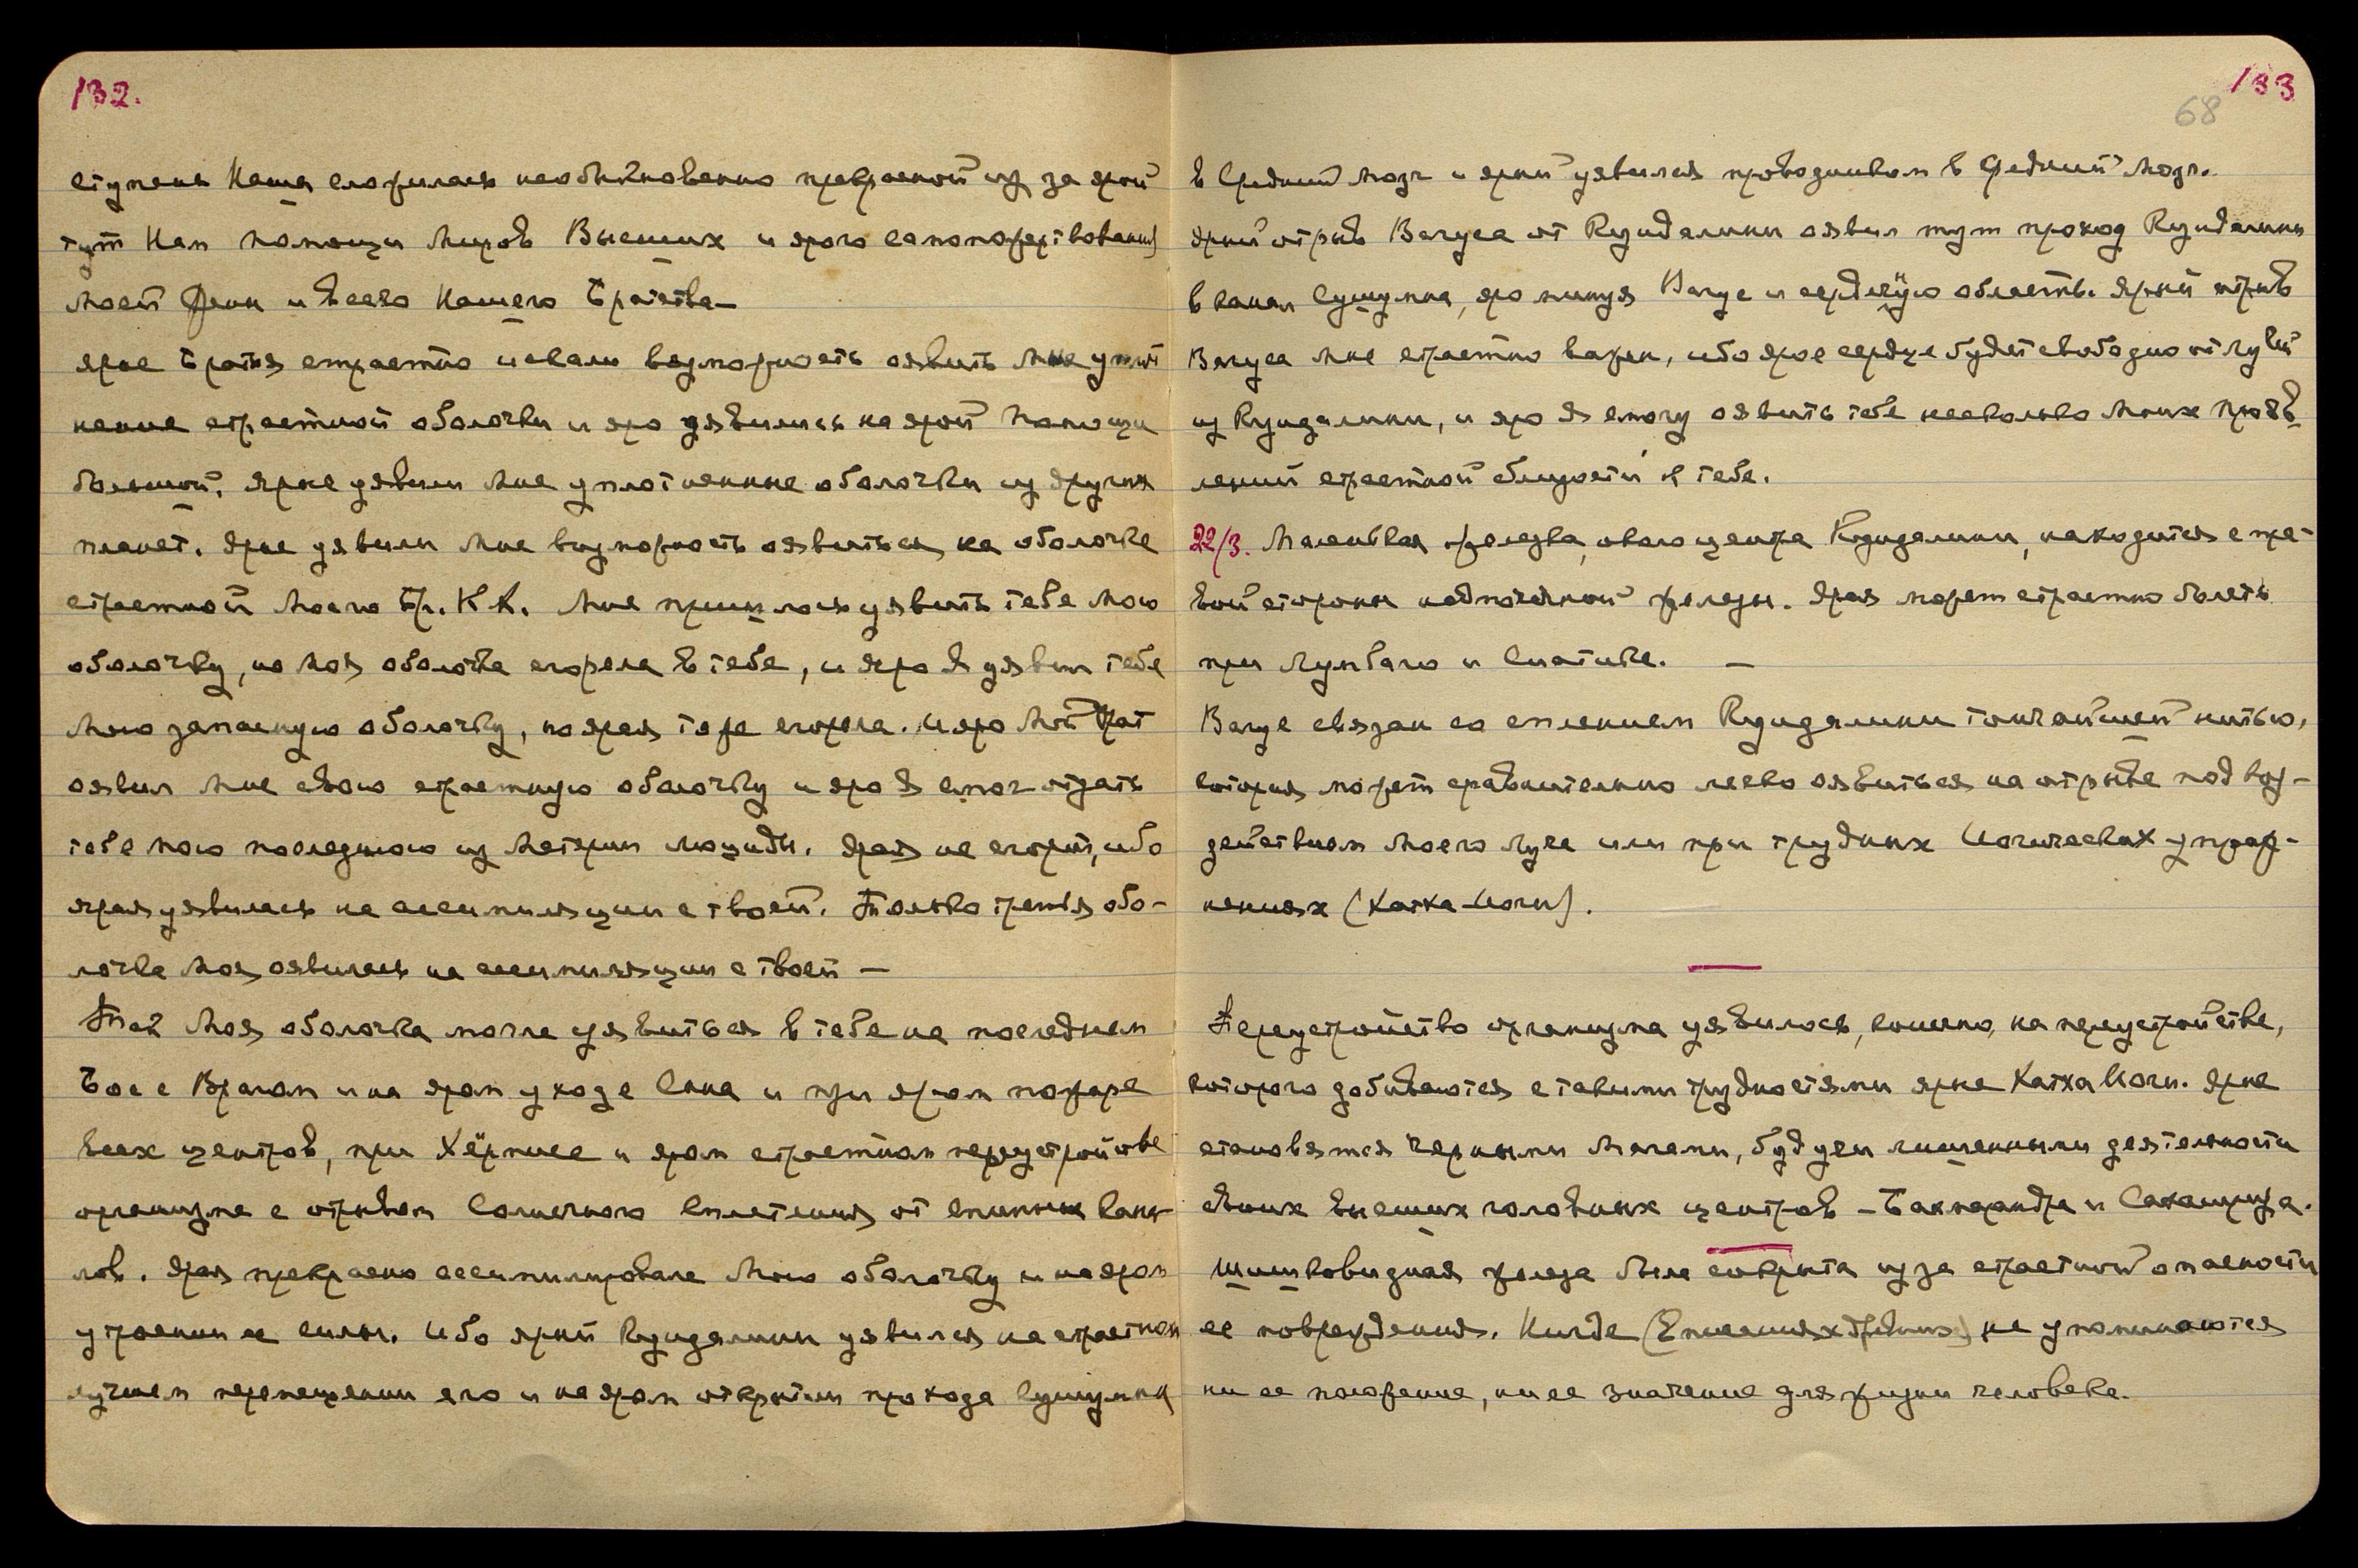 132.
ступень Наша сложилась необыкновенно прекрасной из за ярой
тут Нам помощи Миров Высших и ярого самопожертвования
моей Жены и всего Нашего Братства—
ярое Братья страстно искали возможность оявить Мне уплот
нение страстной оболочки и яро уявились на ярой помощи
большой. Ярые уявили Мне уплотненные оболочки из других
планет. Ярые уявили Мне возможность оявиться на оболочке
страстной Моего Бр. К.К. Мне пришлось уявить тебе мою
оболочку, но Моя оболочка сгорела в тебе, и яро Я уявил тебе
Мою запасную оболочку, но ярая тоже сгорела. И яро Мой Брат
оявил Мне свою страстную оболочку и яро Я смог отдать
тебе мою последнюю из Материи Люциды. Ярая не сгорит, ибо
ярая уявилась на ассимиляции с твоей. Только третья обо-
лочка Моя оявилась на ассимиляции с твоей —
Так Моя оболочка могла уявиться в тебе на последнем
Бое с Врагом и на яром уходе Сына и при яром пожаре
всех центров, при Хёрписе и яром страстном переустройстве
организма с отрывом Солнечного Сплетения от спинных кана
лов. Ярая прекрасно ассимилировала Мою оболочку и на яром
утроении ее силы. Ибо ярый Кундалини уявился на страстном
лучшем перемещении его и на яром открытии прохода Сушумны
133
68
в Средний Мозг и ярый уявился проводником в Средний Мозг.
Ярый отрыв Вагуса от Кундалини оявил тут проход Кундалини
в канал Сушумна, яро минуя Вагус и сердечную область. Ярый отрыв
Вагуса Мне страстно важен, ибо ярое сердце будет свободно от лучей
из Кундалини, и яро Я смогу оявить тебе несколько Моих прояв
лений страстной близости к тебе.
22/3. Маленькая железка, около центра Кундалини, находится с пра-
вой стороны надпочечной железы. Ярая может страстно болеть
при Лумбаго и Сиатике. —
Вагус связан со сплением Кундалини тончайшей нитью,
которая может сравнительно легко оявиться на отрыве под воз-
действием Моего Луча или при трудных Иогических упраж-
нениях (Хатха-Иоги).
Переустройство организма уявилось, конечно, на переустройстве,
которого добиваются с такими трудностями ярые Хатха Иоги. Ярые
становятся черными Магами, будучи лишенными деятельности
своих высших головных центров – Бамарандра и Сахашрара.
Шишковидная железа была сокрыта из за страстной опасности
ее повреждения. Нигде не упоминаются
ни ее положение, ни ее значение для жизни человека.